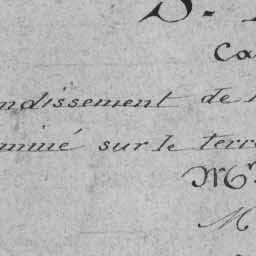 S.
Ca
ndissement de
miné sur le terr
Mr
M